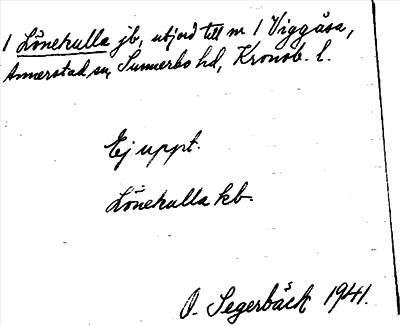 1 Lönehulla jb, utjord till m 1 Viggåsa,
Annerstad sn, Sunnerbo hd, Kronob. l.
Ej uppt.
Lönehulla kb.
O. Segerbäck 1941.